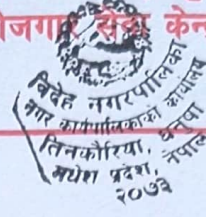 जगार सेवा केन्
विदेह नगरपालिका
नगर कार्यपालिकाको कार्यालय
तिलकौरिया, धनुषा
मधेश प्रदेश, नेपाल
२०७३